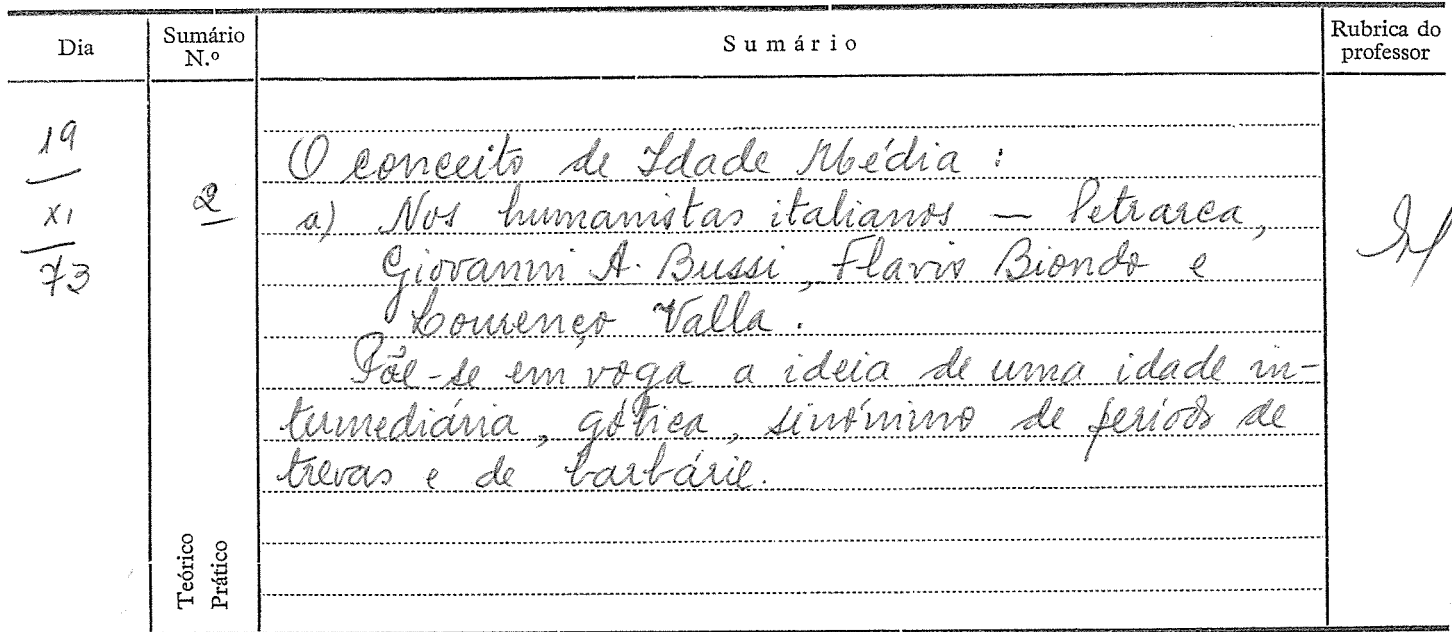 Dia Sumário N.º Sumário Rubrica do professor
19
XI
73
2
O conceito de Idade Média :
a) Nos humanistas italianos — Petrarca,
Giovanni A. Bussi, Flavio Biondo e
Lourenço Valla.
Põe-se em voga a ideia de uma idade in-
termediária, gótica, sinónimo de período de
trevas e de barbárie.
Teórico
Prático